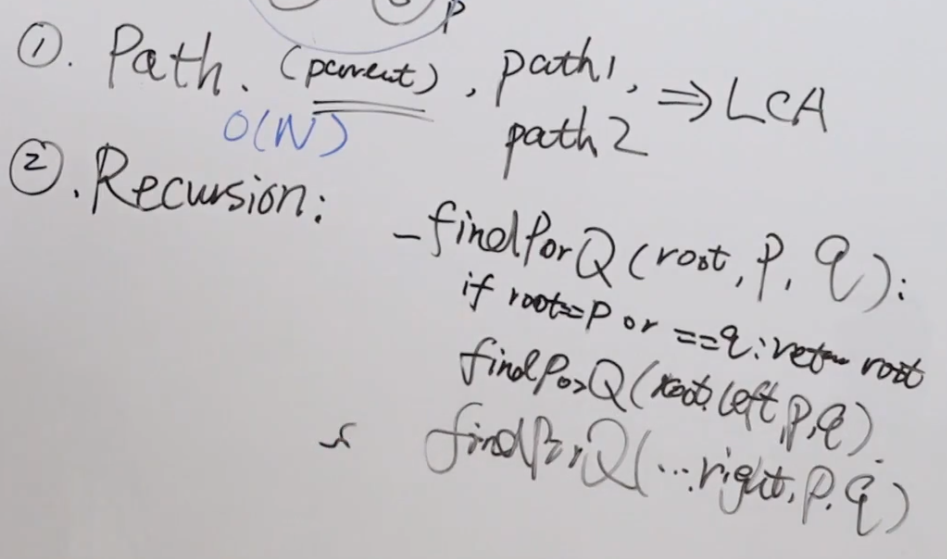 P
①. Path. (parent), path1, ⇒ LCA
O(N) path2
②. Recursion:
_findPorQ(root, P, q):
if root==P or ==q: return root
findPorQ(root.left, P, q)
findPorQ(...right, P, q)